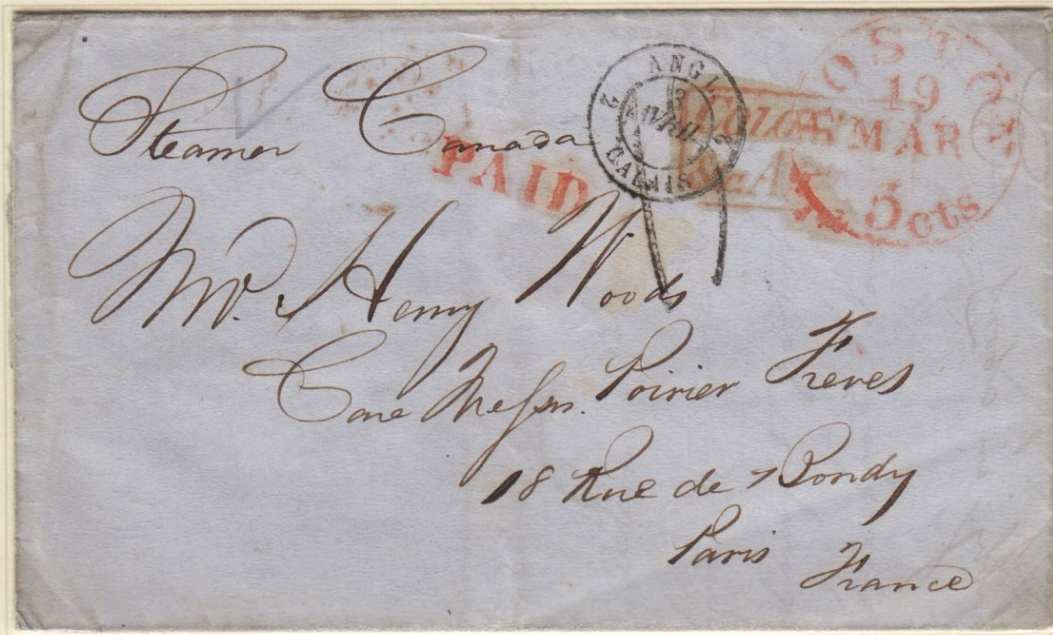 Steamer Canada
PAID
2 ANGL. 2
3
AVRIL
CALAIS
BOSTON
19
MAR
5 cts
COLONIES
&c. ART.
Mr. Henry Woods
Care Messrs. Poirier Freres
18 Rue de Bondy
Paris
France